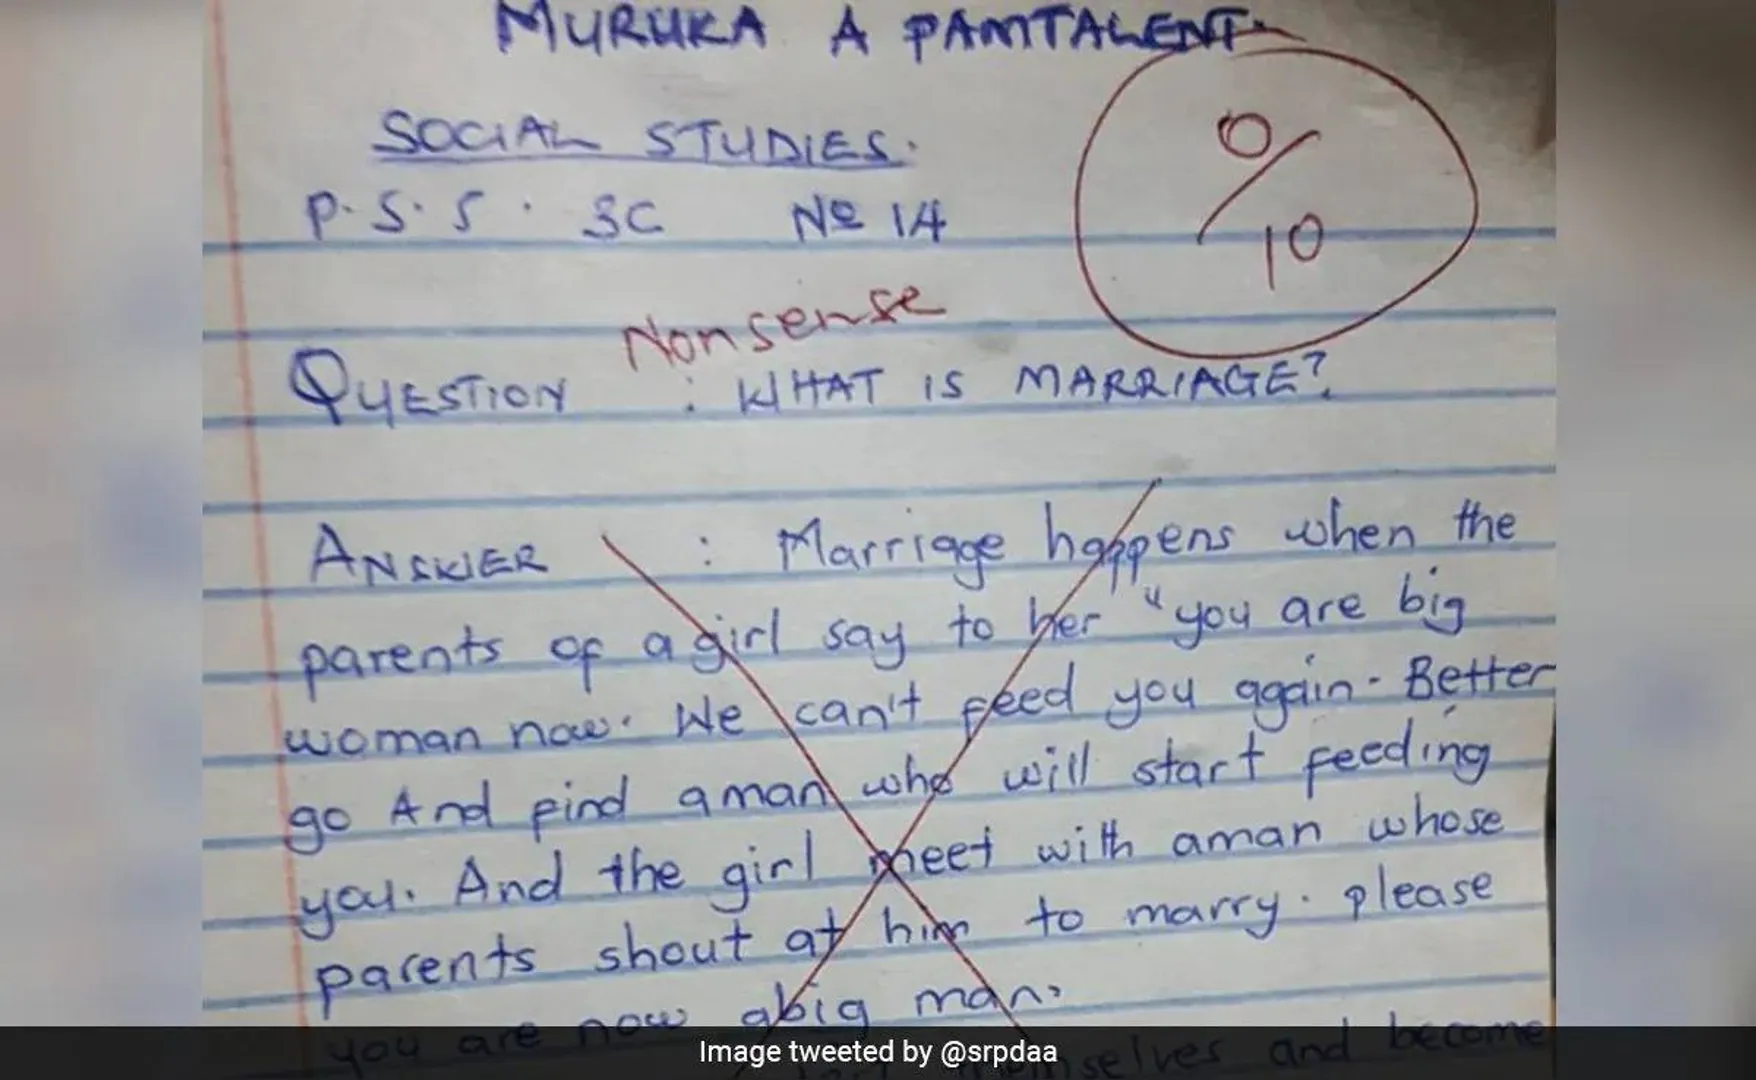 MURUKA A PAMTALENT.
SOCIAL STUDIES.
P.S.S. 3C No 14
0/10
Nonsense
QUESTION : WHAT IS MARRIAGE?
ANSWER : Marriage happens when the
parents of a girl say to her "you are big
woman now. We can't feed you again. Better
go And find a man who will start feeding
you. And the girl meet with a man whose
parents shout at him to marry. please
you are now a big man,
selves and become
Image tweeted by @srpdaa